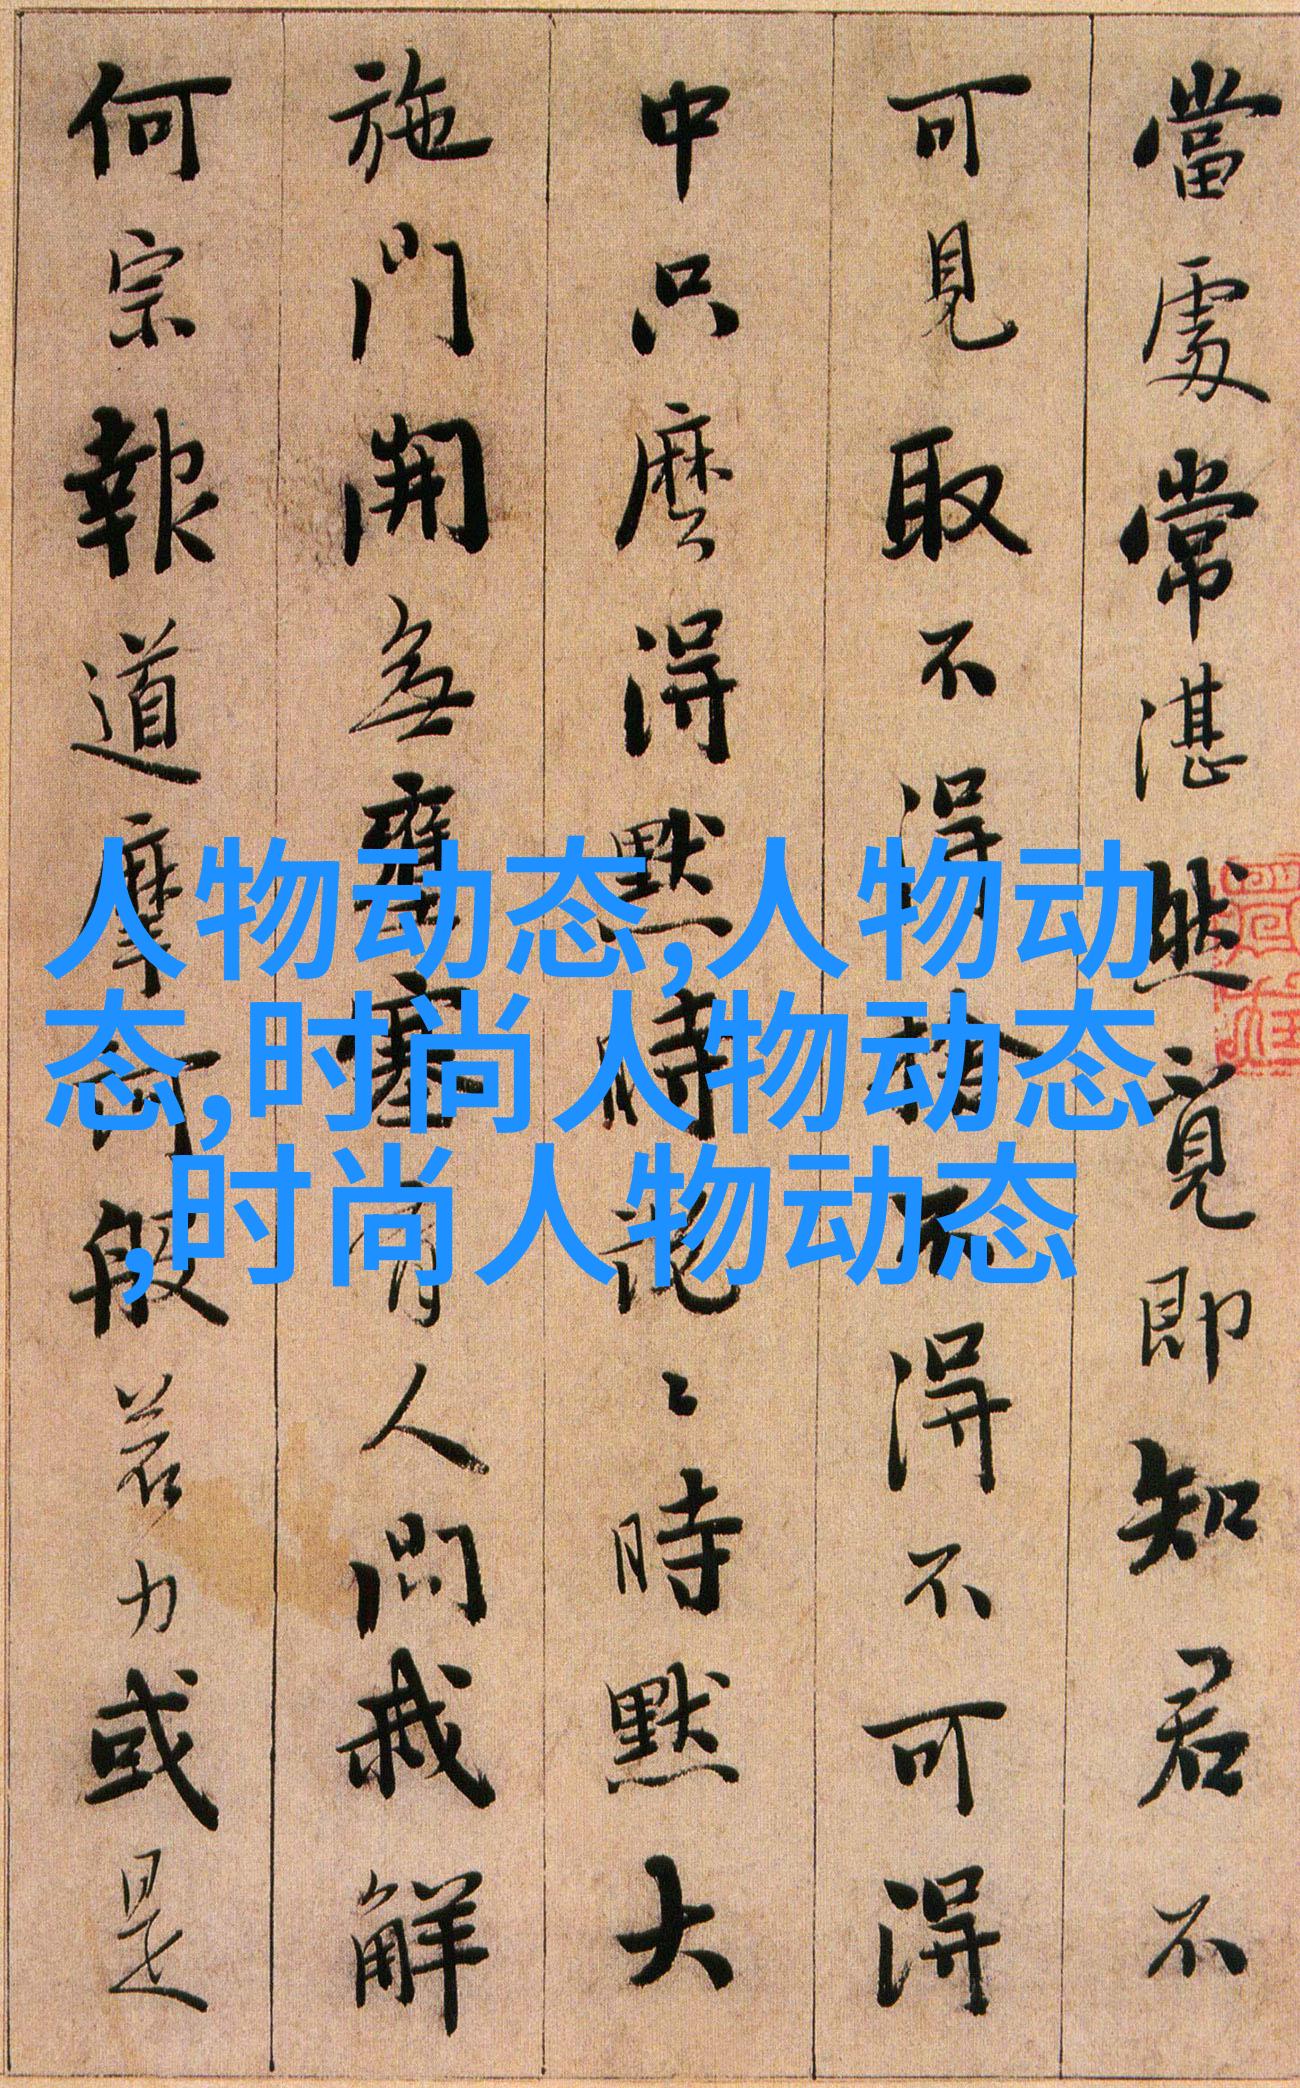 當處常湛然覓即知君不
可見取不得捨不得不可得
中只麼得默時說〻時默大
施門開無壅塞有人問我解
何宗報道摩訶般若力或是
人物动态,人物动
态,时尚人物动态
,时尚人物动态